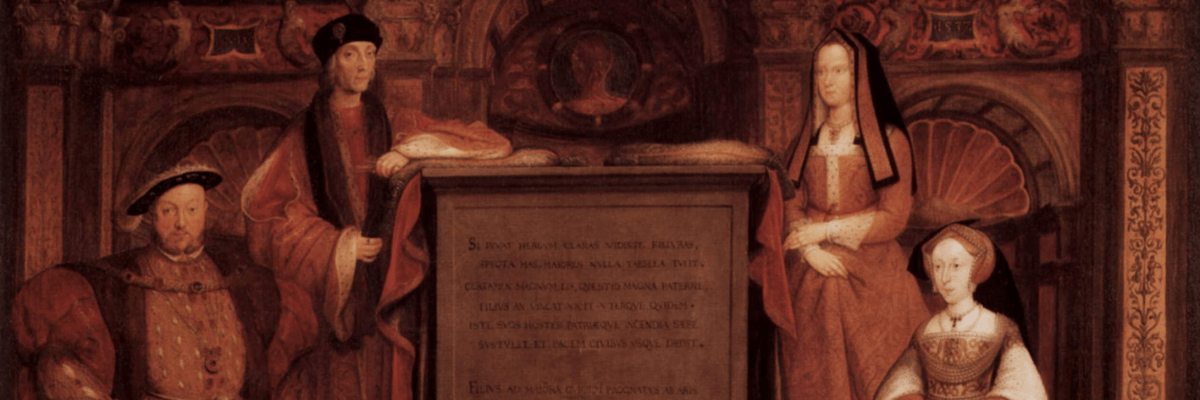 SI IVVAT HEROVM CLARAS VIDISSE FIGVRAS,
SPECTA HAS, MAIORES NVLLA TABELLA TVLIT.
CERTAMEN MAGNVM, LIS, QVÆSTIO MAGNA PATERNE,
FILIVS AN VINCAT. VICIT VTERQVE QVIDEM.
ISTE SVOS HOSTES, PATRIÆQVE INCENDIA SÆPE
SVSTVLIT, ET PACEM CIVIBVS VSQVE DEDIT.
FILIVS AD MAIORA